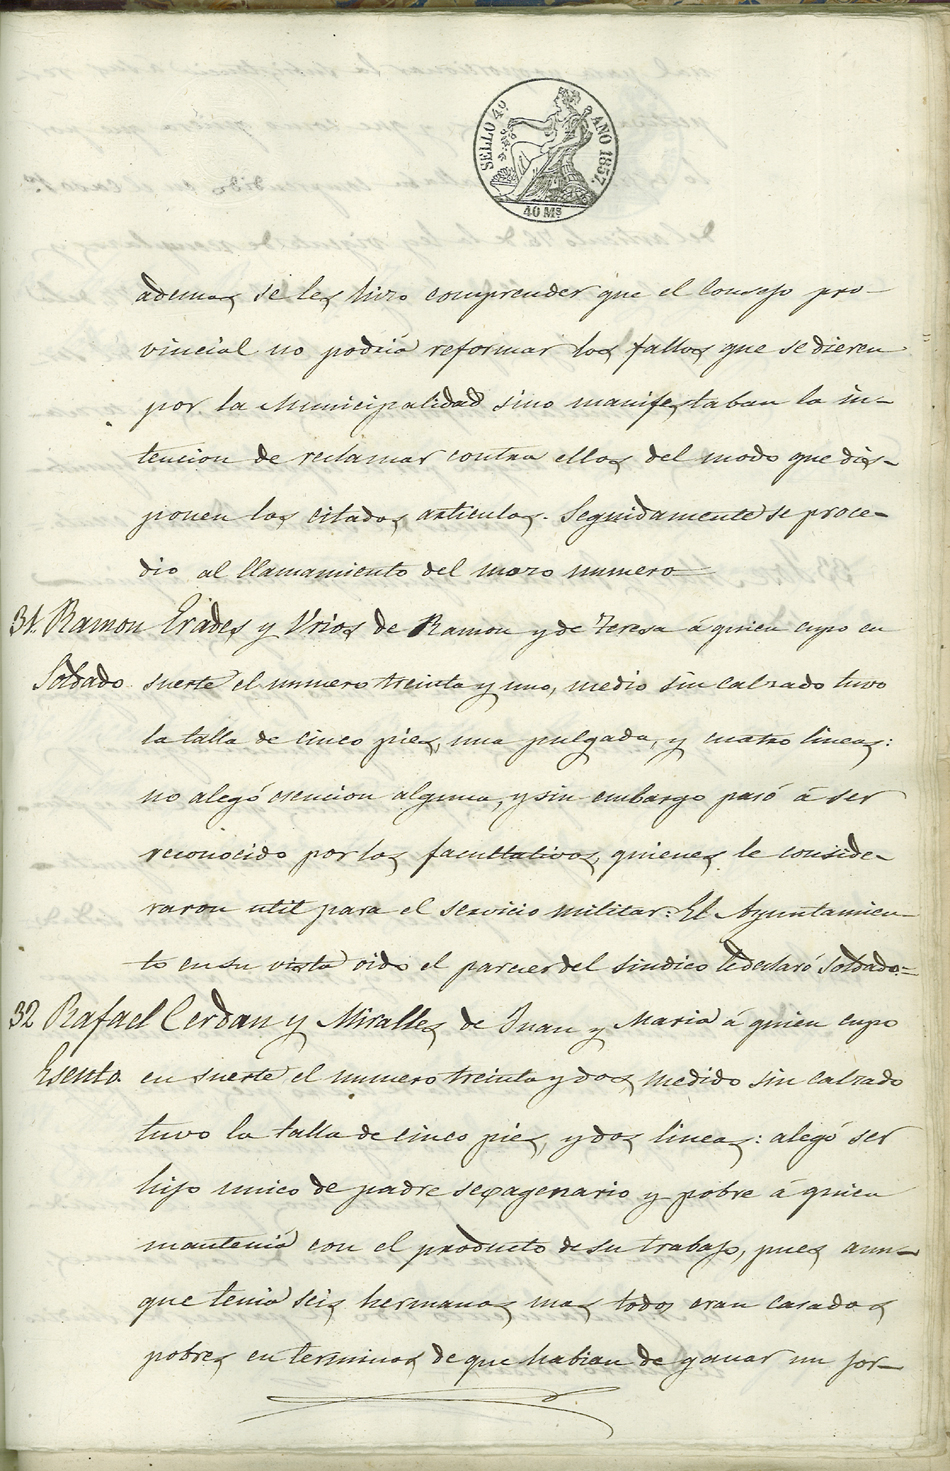 SELLO 4º AÑO 1857.
40 Ms
ademas se les hizo comprender que el Consejo pro-
vincial no podria reformar los fallos que se dieren
por la Municipalidad sino manifestaban la in-
tencion de reclamar contra ellos del modo que dis-
ponen los citados articulos. Seguidamente se proce-
dio al llamamiento del mozo numero=
31. Ramon Erades y Urios de Ramon y de Teresa á quien cupo en
Soldado suerte el numero treinta y uno, medio sin calzado tuvo
la talla de cinco pies, una pulgada, y cuatro lineas:
no alegó esencion alguna, y sin embargo pasó á ser
reconocido por los facultativos, quienes le conside-
raron util para el servicio militar: El Ayuntamien-
to en su vista oido el parecer del sindico le declaró soldado.=
32 Rafael Cerdan y Miralles de Juan y Maria á quien cupo
Esento. en suerte el numero treinta y dos, medido sin calzado
tuvo la talla de cinco pies, y dos lineas: alegó ser
hijo unico de padre sexagenario y pobre á quien
mantenia con el producto de su trabajo, pues aun-
que tenia seis hermanos mas todos eran casados
pobres en terminos de que habian de ganar un jor-